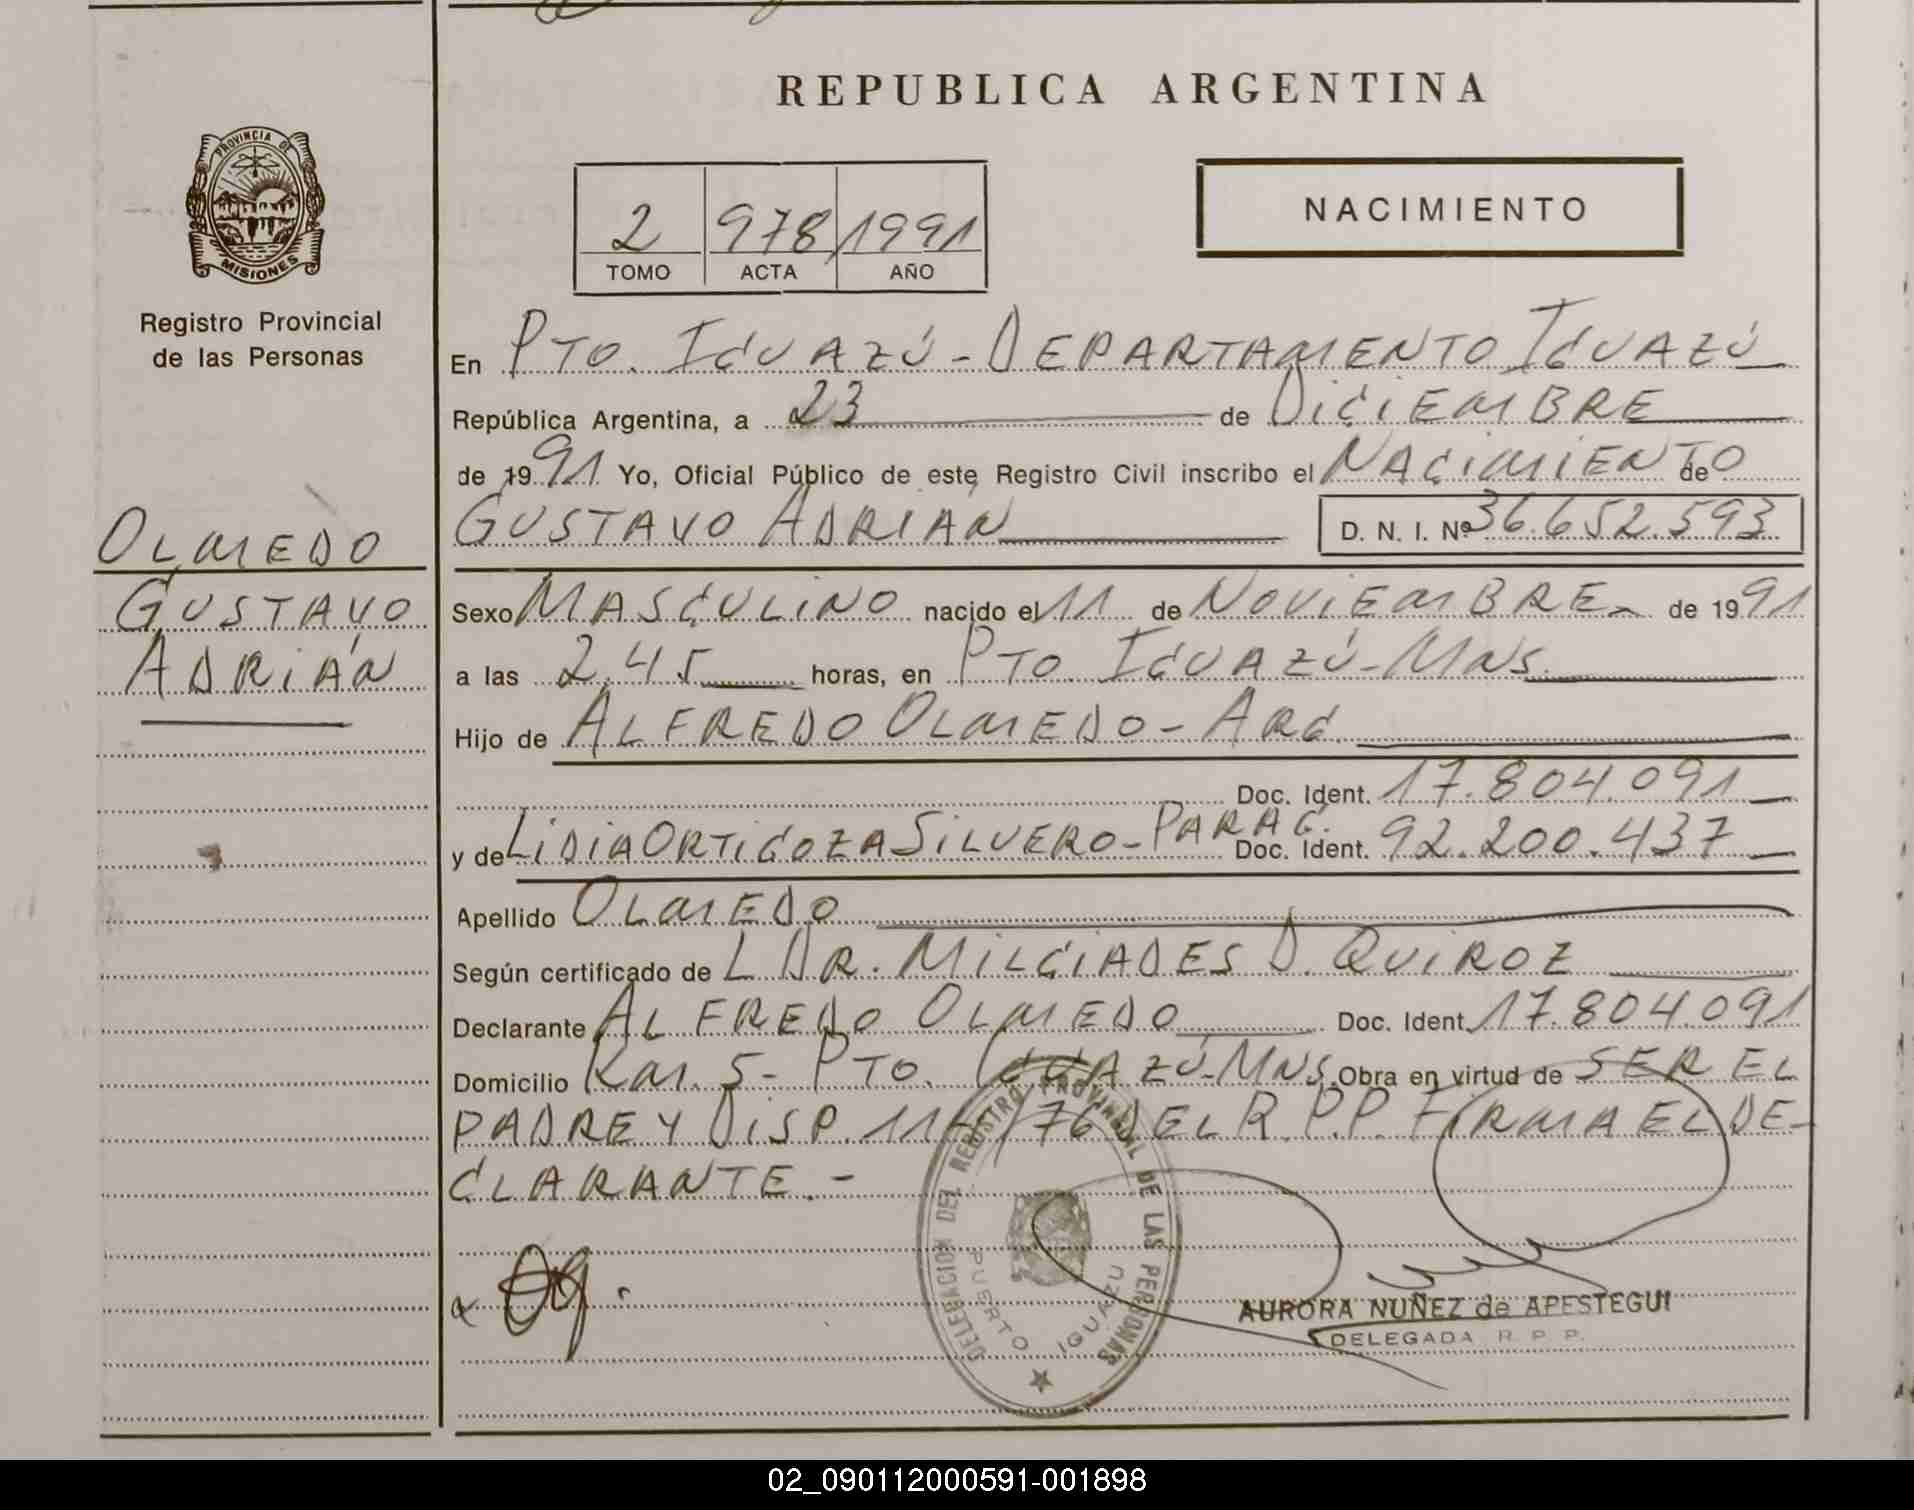 REPUBLICA ARGENTINA
PROVINCIA DE
MISIONES
Registro Provincial
de las Personas
2 978 1991
TOMO ACTA AÑO
NACIMIENTO
En PTO. IGUAZÚ - DEPARTAMENTO IGUAZÚ
República Argentina, a 23 de DICIEMBRE
de 1991 Yo, Oficial Público de este Registro Civil inscribo el NACIMIENTO de
GUSTAVO ADRIÁN D. N. I. Nº 36.652.593
OLMEDO
GUSTAVO
ADRIÁN
Sexo MASCULINO nacido el 11 de NOVIEMBRE de 1991
a las 2,45 horas, en PTO. IGUAZÚ - MNS.
Hijo de ALFREDO OLMEDO - ARG.
Doc. Ident. 17.804.091
y de LIDIA ORTIGOZA SILVERO - PARAG. Doc. Ident. 92.200.437
Apellido OLMEDO
Según certificado de L DR. MILCIADES D. QUIROZ
Declarante ALFREDO OLMEDO Doc. Ident. 17.804.091
Domicilio KM. 5 - PTO. IGUAZÚ - MNS. Obra en virtud de SER EL
PADRE Y DISP. /76 DEL R.P.P. FIRMA EL DE-
CLARANTE.-
DELEGACION DEL REGISTRO PROVINCIAL DE LAS PERSONAS
PUERTO IGUAZU
AURORA NUÑEZ de APESTEGUI
DELEGADA R. P. P.
02_090112000591-001898